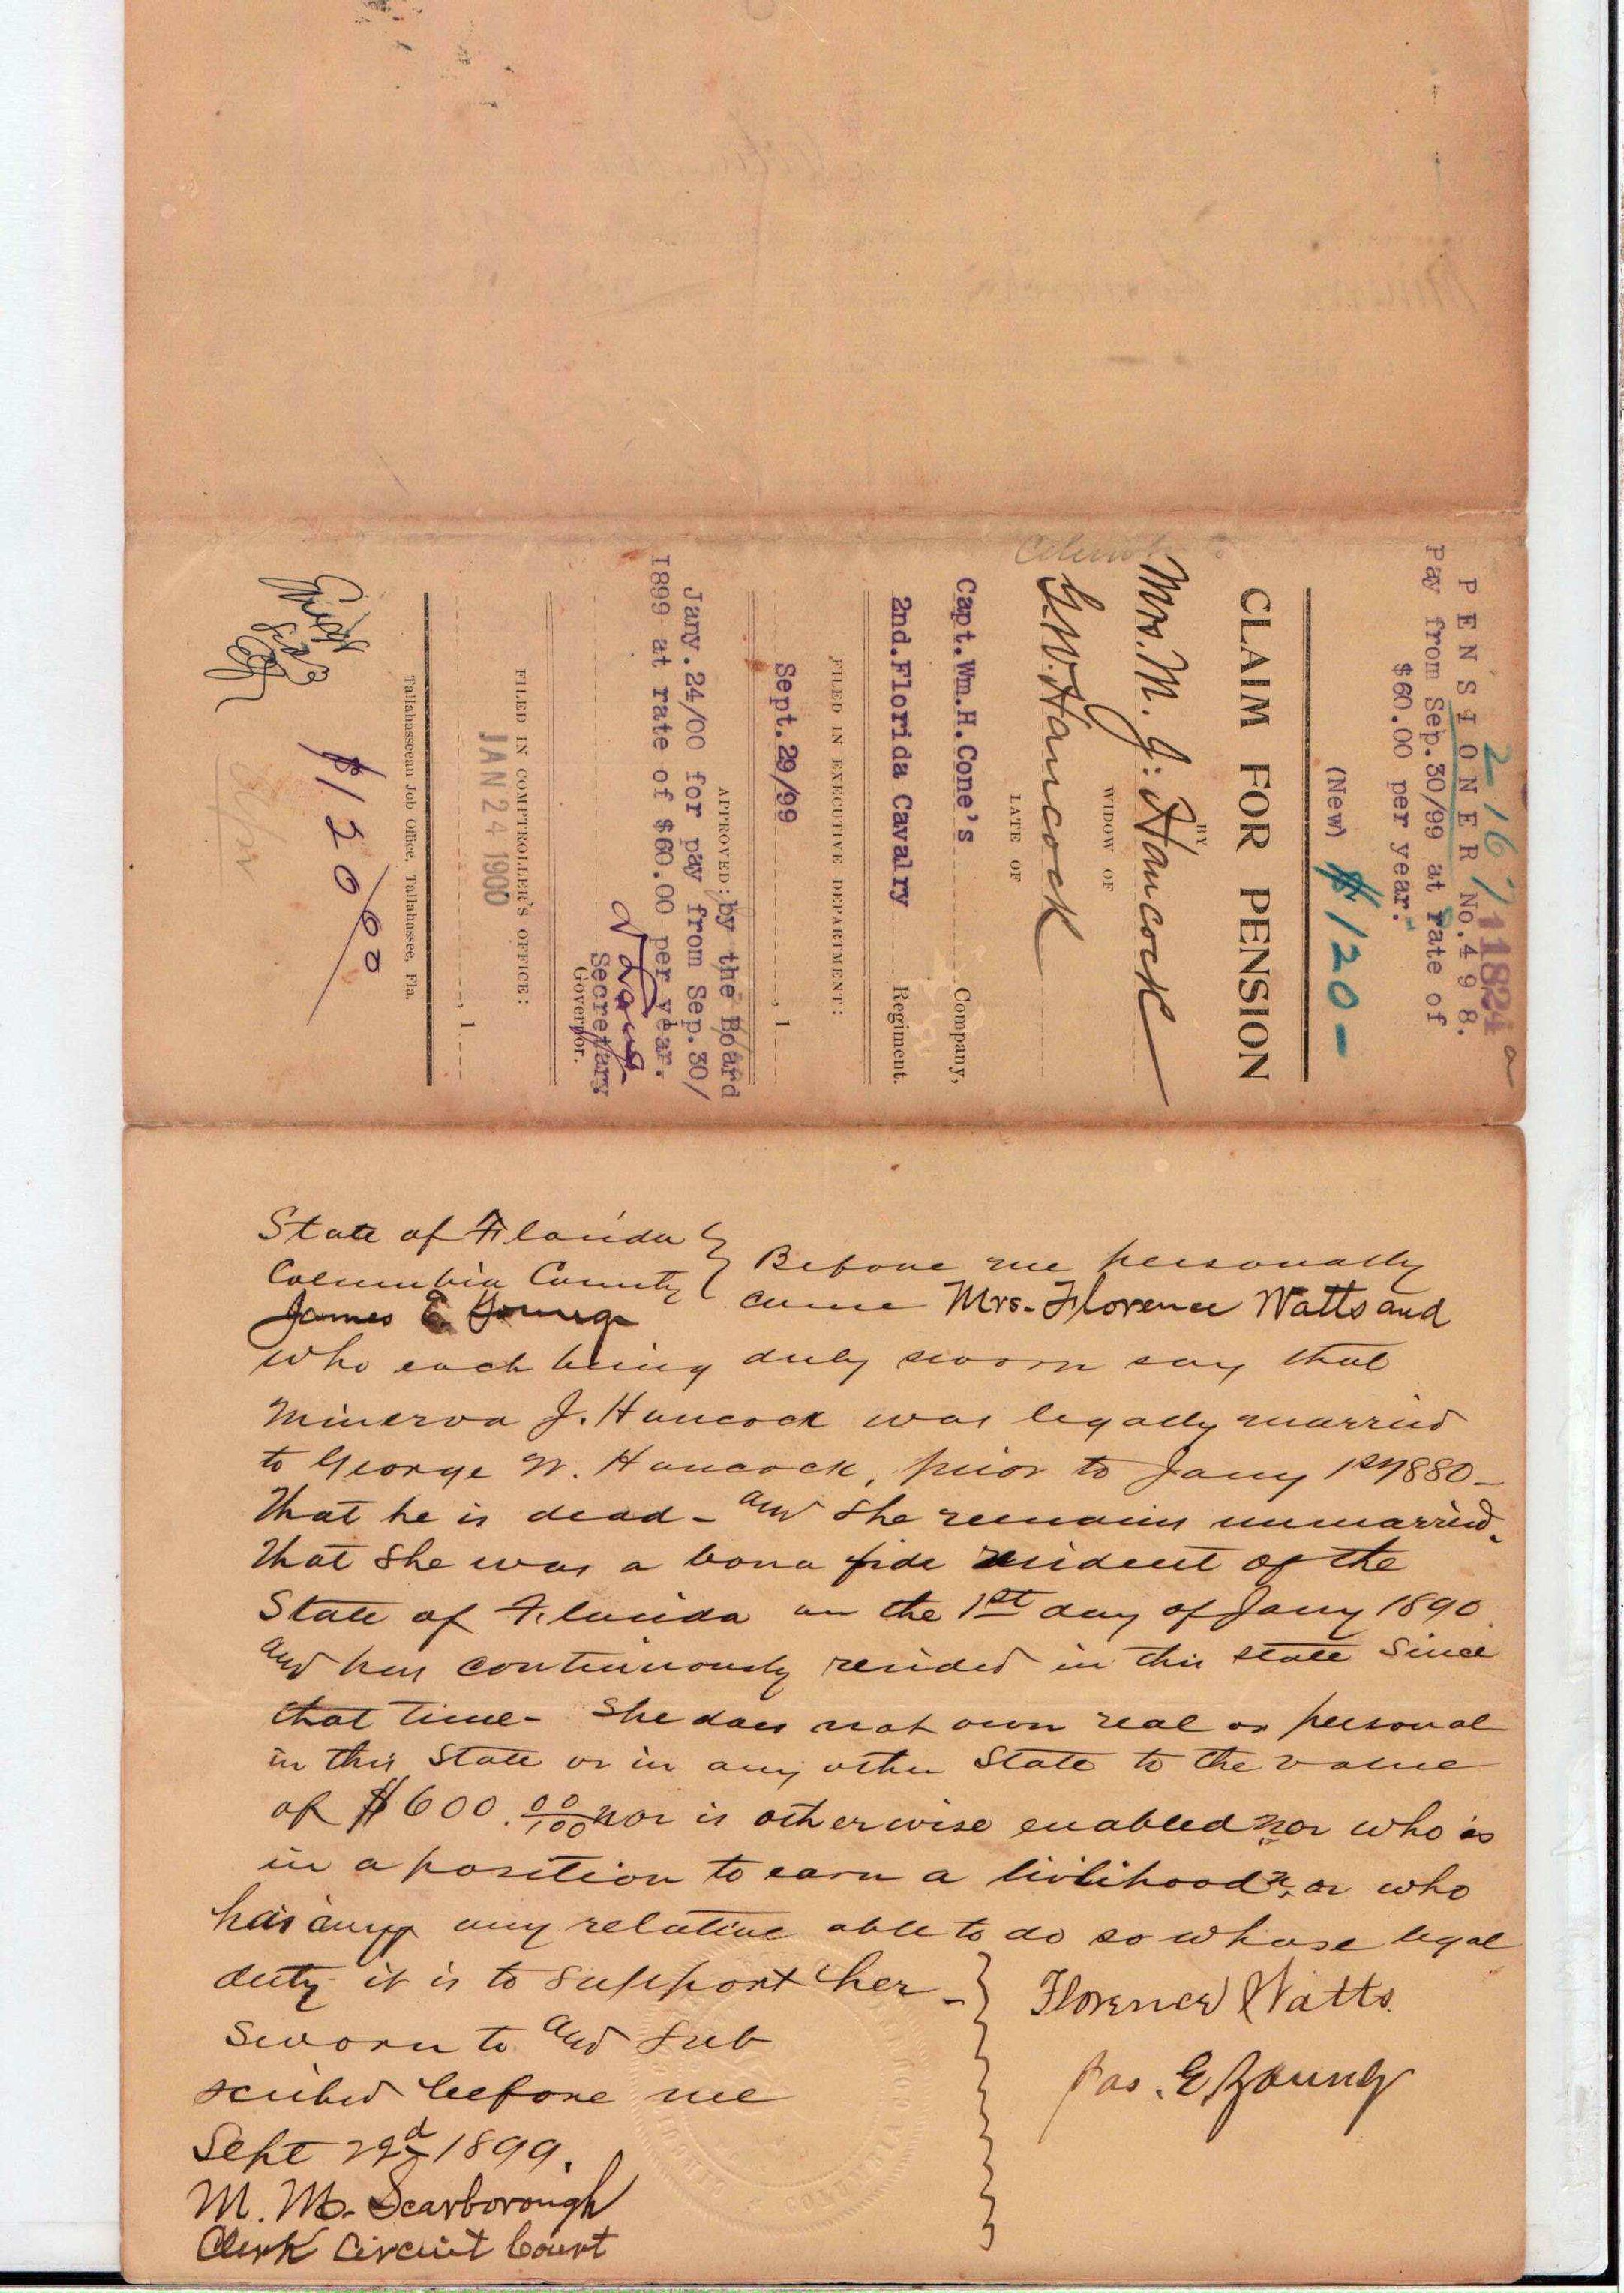 2167
11824
a
PENSIONER No. 498.
Pay from Sep.30/99 at rate of
$60.00 per year.
(New) $120-
CLAIM FOR PENSION
BY
Mrs. M. J. Hancock
WIDOW OF
G.W. Hancock
LATE OF
Capt.Wm.H.Cone's Company,
2nd.Florida Cavalry Regiment.
FILED IN EXECUTIVE DEPARTMENT:
Sept.29/99 , 1
APPROVED: by the Board
Jany.24/00 for pay from Sep.30/
1899 at rate of $60.00 per year.
Secretary
Governor.
FILED IN COMPTROLLER'S OFFICE:
JAN 24 1900
, 1
Tallahasseean Job Office, Tallahassee, Fla.
$120/00
State of Florida
Columbia County
Before me personally
came Mrs. Florence Watts and
James E Young
who each being duly sworn say that
Minerva J. Hancock was legally married
to George W. Hancock, prior to Jany 1st 1880-
That he is dead - and she remains unmarried.
That she was a bona fide resident of the
State of Florida on the 1st day of Jany 1890
and has continuously resided in this state since
that time- She does not own real or personal
in this State or in any other State to the value
of $600.00/100 nor is otherwise enabled nor who is
in a position to earn a livlihood nor who
has any relative able to do so whose legal
duty it is to support her -
Sworn to and sub
scribed before me
Sept 22d 1899.
M. M. Scarborough
Clerk Circuit Court
Florence Watts
Jas. E. Young